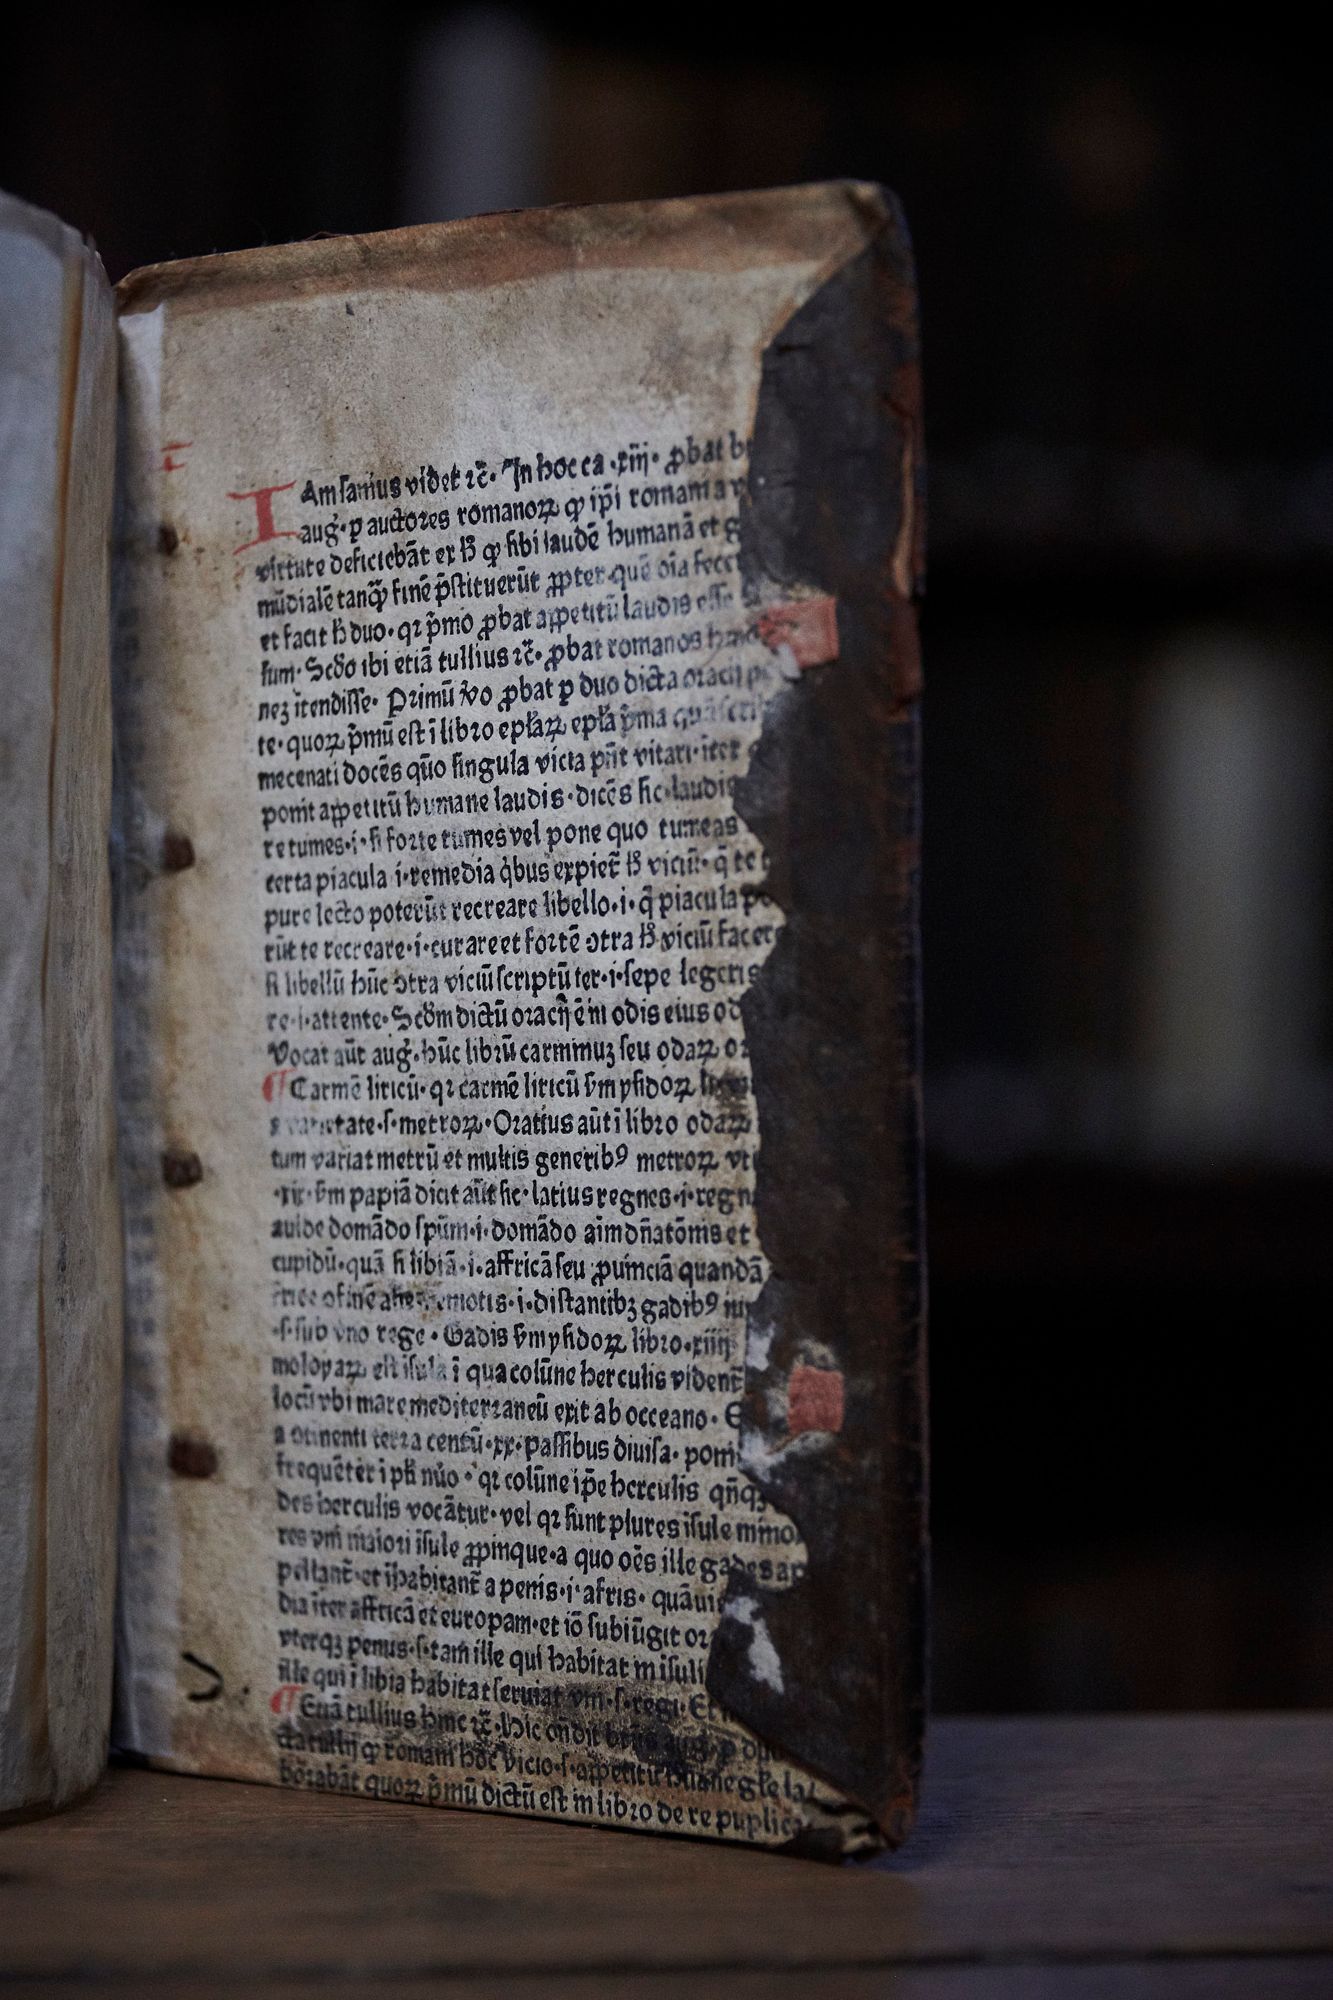 I Am sanius videt ⁊c̄. In hoc ca .xiij. ꝓbat b
aug̓. ꝑ auctores romanoꝝ ꝙ ip̄i romani a v
virtute deficiebāt ex hͦ ꝙ sibi laudē humanā et g
mūdialē tanꝙ̄ finē p̄stituerūt ꝓpter quē oīa fecer
et facit hͦ duo. qꝛ p̄mo ꝓbat appetitū laudis esse
sum. Scd̓o ibi etiā tullius ⁊c̄. ꝓbat romanos hmōi
neʒ ītendisse. Primū v̓o ꝓbat ꝑ duo dicta oracij p
te. quoꝝ p̄mū est ī libro ep̄laꝝ ep̄la p̄ma quā scri
mecenati docēs quō singula vicia p̄nt vitari. īter
ponit appetitū humane laudis. dicēs sic. laudis
re tumes. i. si forte tumes vel pone quo tumeas
certa piacula .i. remedia q̇bus expiet̄ hͦ viciū. q̄ te t
pure lecto poterūt recreare libello. i. q̄ piacula po
rūt te recreare. i. curare et fortē ꝯtra hͦ viciū facere
si libellū hūc ꝯtra viciū scriptū ter. i. sepe legeris
re. i. attente. Scd̓m dictū oracij ē in odis eius od
Vocat aūt aug̓. hūc librū carminuʒ seu odaꝝ or
¶ Carmē liricū. qꝛ carmē liricū s̓m ysidoꝝ
varietate .s. metroꝝ. Oratius aūt ī libro odaꝝ
tum variat metrū et multis generibꝰ metroꝝ vti
.xix. s̓m papiā dicit aūt sic. latius regnes. i. regn
auide domādo sp̄um. i. domādo
cupidū. quā si libiā. i. affricā seu ꝓuinciā quandā
remotis. i. distantibꝫ gadibꝰ iun
.s. sub vno rege. Gadis s̓m ysidoꝝ libro .xiiij.
est īsula ī qua colūne herculis vident̄
locū vbi mare mediterraneū exit ab occeano. E
a ꝯtinenti terra centū .xx. passibus diuisa. poni
frequēter ī pl̄i nūo. qꝛ colūne ip̄e herculis qñqꝫ
des herculis vocātur. vel qꝛ sunt plures īsule mino
res vni maiori īsule ꝓpinque. a quo oēs ille gades ap
pellant̄. et īhabitant̄ a penis. i. afris. quāuis
dia īter affricā et europam. et iō subiūgit or
vterqꝫ penus .s. tam̄ ille qui habitat in isuli
ille qui ī libia habitat seruiat vni .s. regi. Et
¶ Etiā tullius hinc ⁊c̄. Hic on̄dit bt̄us aug̓. ꝑ duo
dicta tullij ꝙ romani hoc vicio .s. appetitū hūane gl̄e la
borabāt quoꝝ p̄mū dictū est in libro de re puplica